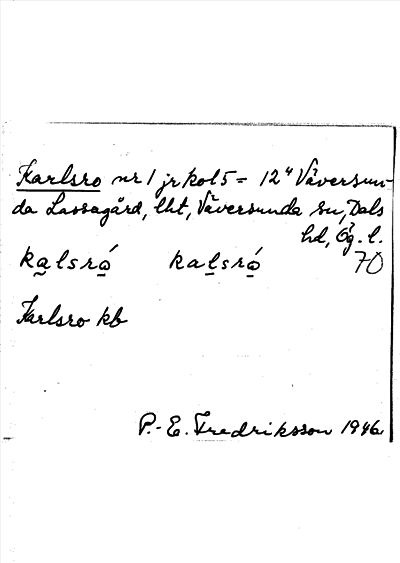 Karlsro nr 1 jr kol 5 = 12⁴ Väversun-
da Lassagård, lht, Väversunda sn, Dals
hd, Ög. l.
ka̲lsró̲ kal̲sró̲ 70
Karlsro kb
P.-E. Fredriksson 1946